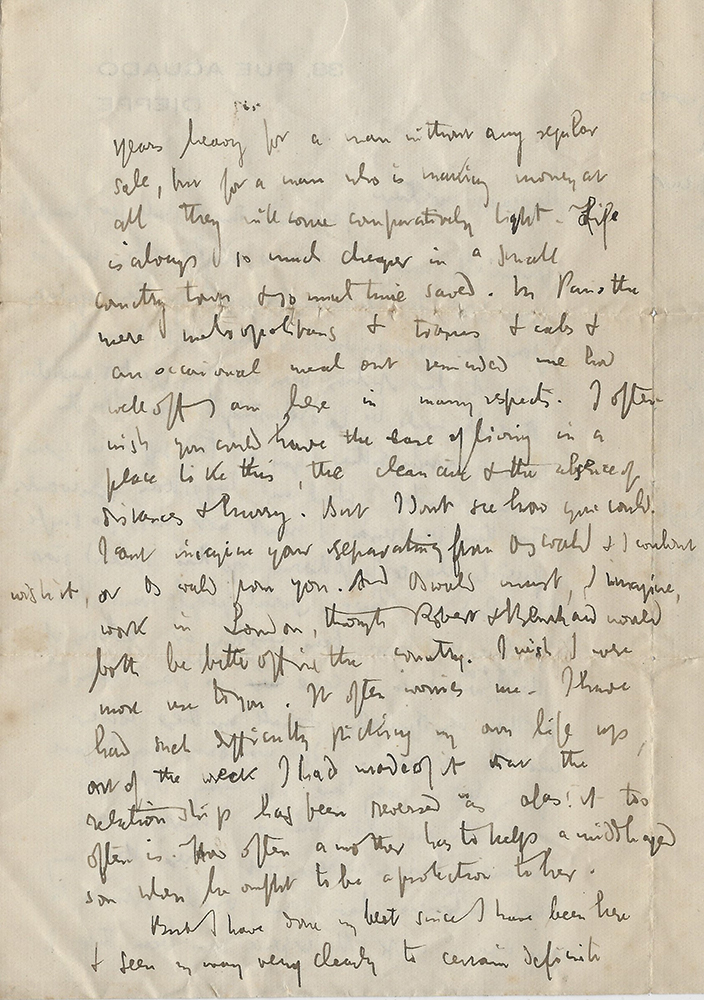 38, RUE AGUADO
DIEPPE
six
years heavy for a man without any regular
sale, but for a man who is making money at
all they will come comparatively light. Life
is always so much cheaper in a small
country town & so much time saved. In Paris the
mere metropolitans & trams & cabs &
an occasional meal out reminded me how
well off I am here in many respects. I often
wish you could have the ease of living in a
place like this, the clean air & the absence of
distances & hurry. But I don't see how you could.
I can't imagine your separating from Oswald & I wouldn't
wish it, or Oswald from you. And Oswald must, I imagine,
work in London, though Robert & Bernhard would
both be better off in the country. I wish I were
more use to you. It often worries me. I have
had such difficulty picking my own life up,
out of the wreck I had made of it that the
relationship has been reversed as alas! it too
often is. How often a mother has to help a middleaged
son when he ought to be a protection to her.
But I have done my best since I have been here
& seen my way very clearly to certain definite